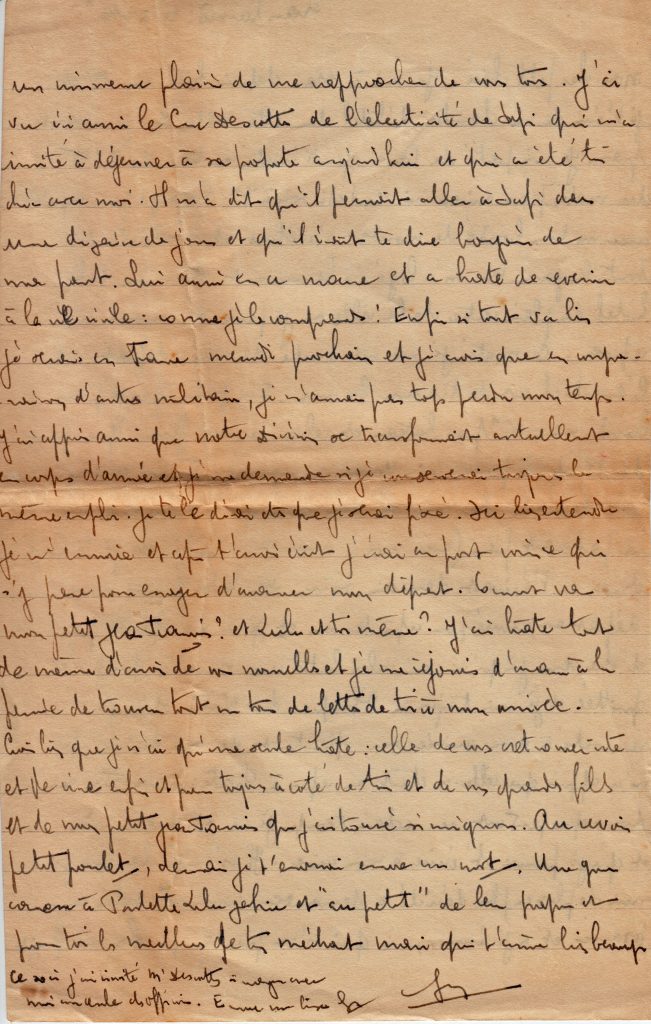 un immense plaisir de me rapprocher de vous tous. J'ai
vu ici aussi le Cne Descottes de l'électricité de Safi qui m'a
invité à déjeuner à sa popote aujourd'hui et qui a été très
chic avec moi. Il m'a dit qu'il pensait aller à Safi dans
une dizaine de jours et qu'il irait te dire bonjour de
ma part. Lui aussi en a marre et a hâte de revenir
à la vie civile : comme je le comprends ! Enfin si tout va bien
je serai en France mercredi prochain et je crois que en compa-
raison d'autres militaires, je n'aurai pas trop perdu mon temps.
J'ai appris aussi que notre Division se transformait actuellement
en corps d'armée et je me demande si je conserverai toujours le
même emploi. je te le dirai dès que je serai fixé. Ici bien entendu
je m'ennuie et après t'avoir écrit j'irai au port voir ce qui
s'y passe pour essayer d'avancer mon départ. Comment va
mon petit jean Francis ? et Lulu et toi même ? J'ai hâte tout
de même d'avoir de vos nouvelles et je me réjouis d'avance à la
pensée de trouver tout un tas de lettres de toi à mon arrivée.
Crois bien que je n'ai qu'une seule hâte : celle de vous retrouver vite
et de vivre enfin et pour toujours à côté de toi et de nos grands fils
et de mon petit jean Francis que j'ai trouvé si mignon. Au revoir
petit poulet, demain je t'enverrai encore un mot. Une grosse
caresse à Paulette Lulu et "au petit" de leur papa et
pour toi les meilleurs de ton méchant mari qui t'aime bien beaucoup
Ce soir j'ai invité Mr Descottes à manger avec
moi au cercle des officiers. Encore un